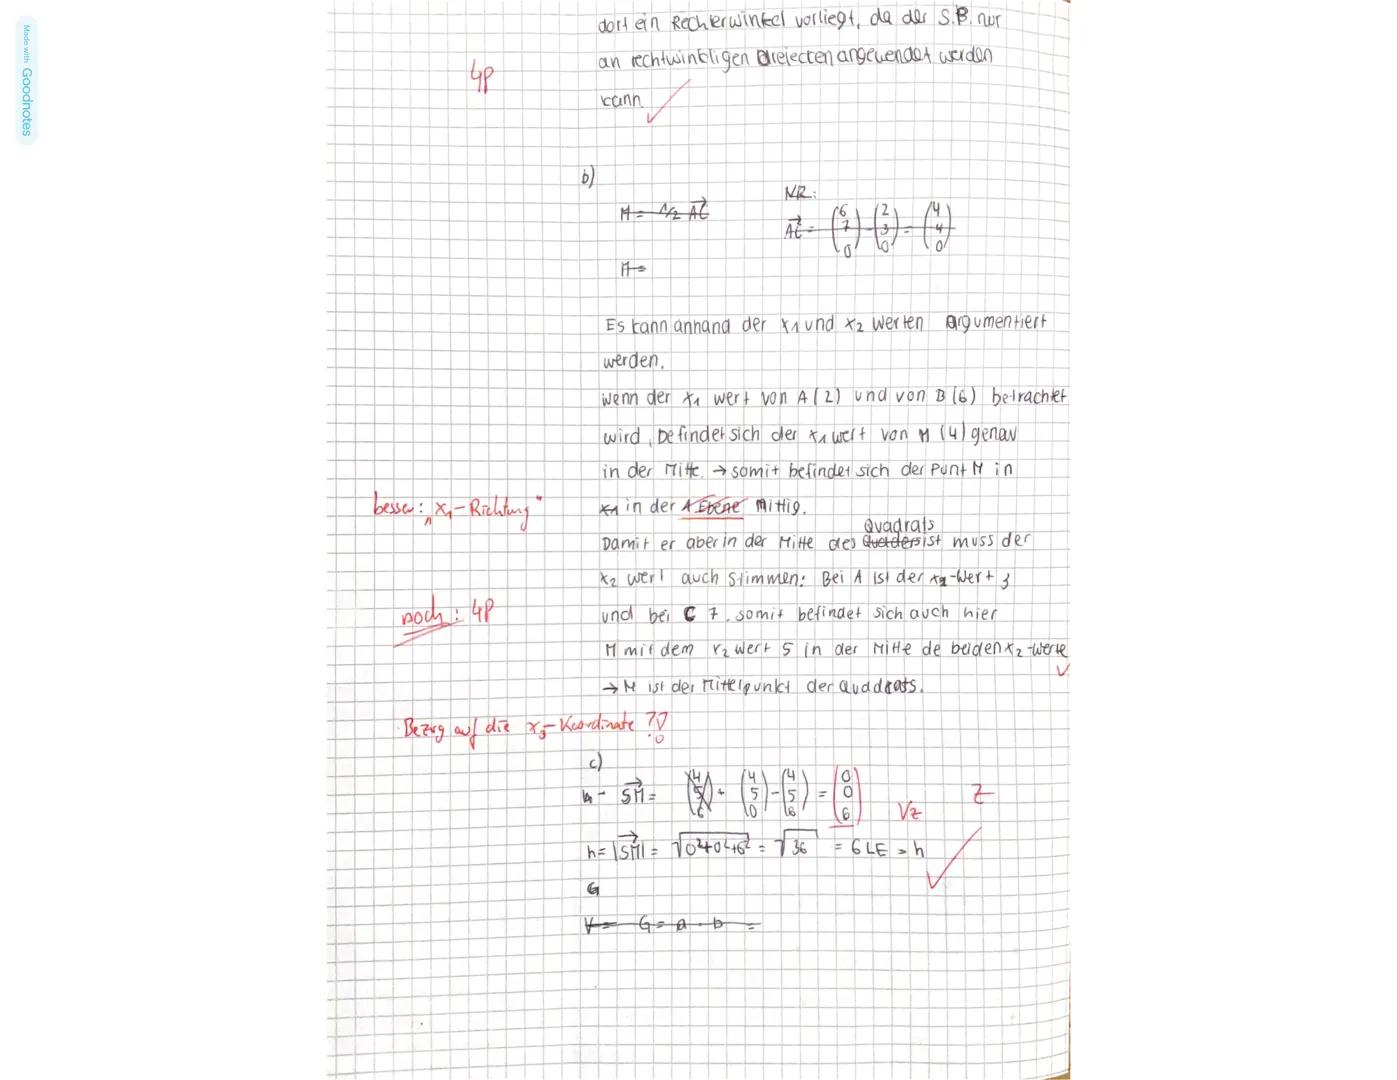 Made with Goodnotes
dort ein Rechterwinkel vorliegt, da der S.P. nur
an rechtwinkligen Dreiecken angewendet werden
4P
kann
✓
b)
NR:
M = 1/2 AC
AC = (6 7 0) - (2 3 0) = (4 4 0)
M =
Es kann anhand der x1 und x2 werten argumentiert
werden.
wenn der x1 wert von A(2) und von B(6) betrachtet
wird, befindet sich der x1 wert von M (4) genau
in der Mitte. → somit befindet sich der Punt M in
besser: „x1-Richtung"
x1 in der Ebene Mittig.
Quadrats
Damit er aber in der Mitte des Quaders ist muss der
x2 wert auch stimmen: Bei A ist der x2-Wert 3
noch: 4P
und bei C 7. somit befindet sich auch hier
M mit dem x2 wert 5 in der Mitte de beiden x2-werte
✓
→ M ist der Mittelpunkt der Quadrats.
Bezug auf die x3-Koordinate ?!
c)
h = SM = (4 5 6) - (4 5 0) - (4 5 6) = (0 0 6) Vz Z
h = |SM| = √0²+0²+6² = √36 = 6 LE = h
✓
G
V = G = a · b =